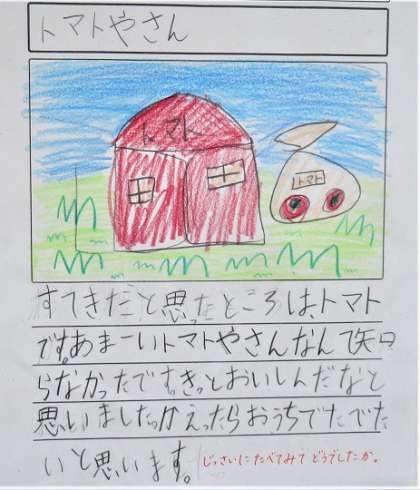 トマトやさん
トマト
トマト
すてきだと思ったところは、トマト
です。あまーいトマトやさんなんて知
らなかったです。きっとおいしんだなと
思いました。かえったらおうちでたべた
いと思います。
じっさいにたべてみてどうでしたか。